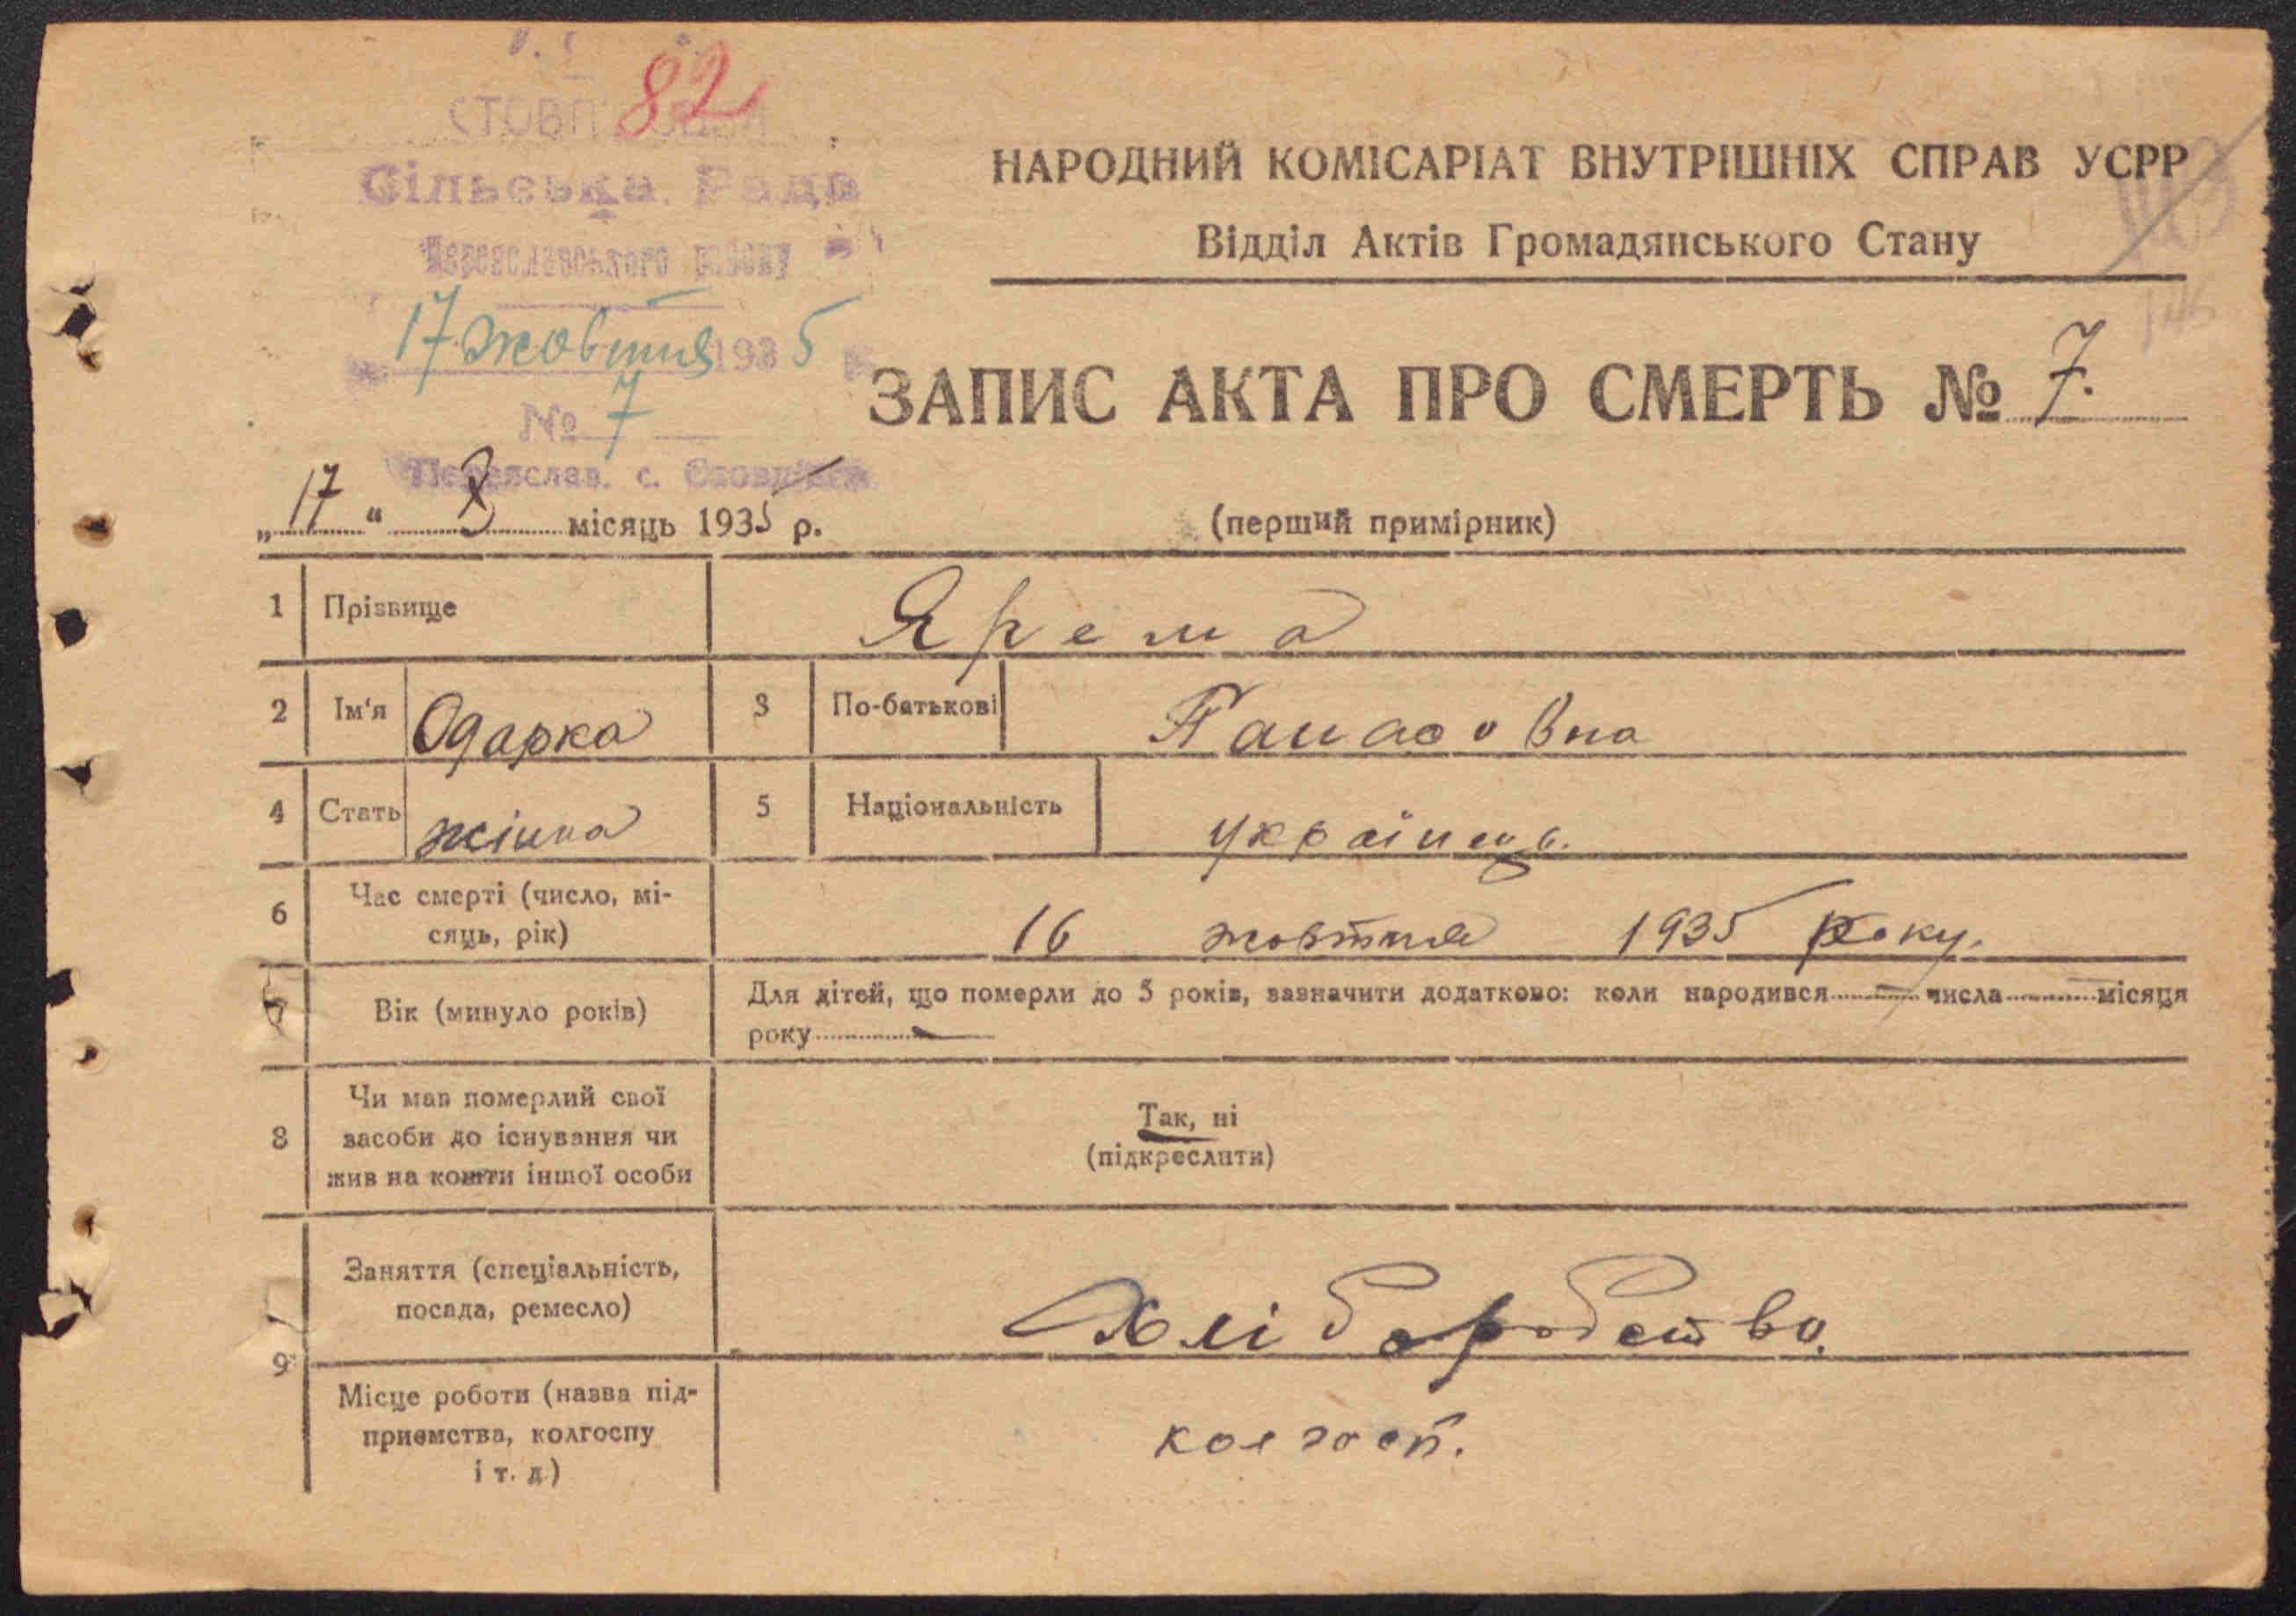 82
Сільська Рада
Переяславського району
17 жовтня 1935
№ 7
Переяслав. с.
НАРОДНИЙ КОМІСАРІАТ ВНУТРІШНІХ СПРАВ УСРР
Відділ Актів Громадянського Стану
146
ЗАПИС АКТА ПРО СМЕРТЬ № 7.
„17“ X місяць 1935 р.
(перший примірник)
1 Прізвище Ярема
2 Ім'я Одарка 3 По-батькові Панасовна
4 Стать жінка 5 Національність українець.
6 Час смерті (число, мі-
сяць, рік) 16 жовтня 1935 Року.
7 Вік (минуло років) Для дітей, що померли до 5 років, зазначити додатково: коли народився — числа — місяця
року —
8 Чи мав померлий свої
засоби до існування чи
жив на кошти іншої особи
Так, ні
(підкреслити)
9 Заняття (спеціальність,
посада, ремесло) Хліборобство.
Місце роботи (назва під-
приємства, колгоспу
і т. д.) колгосп.